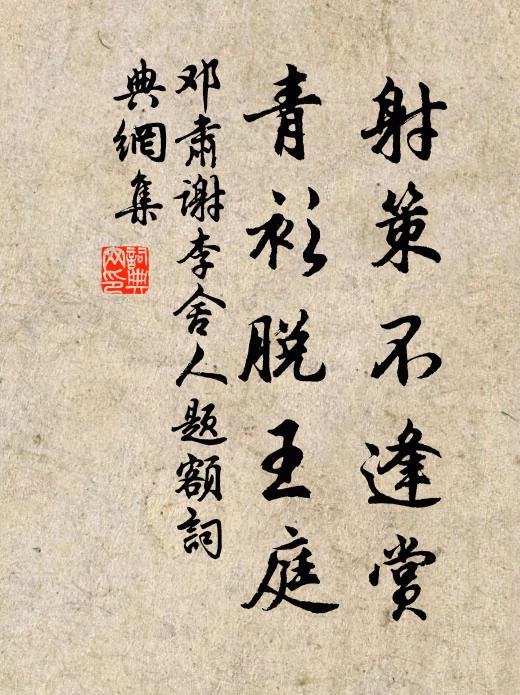 射策不逢赏
青衫脱王庭
邓肃谢李舍人题额词
典網集
詞典
网印